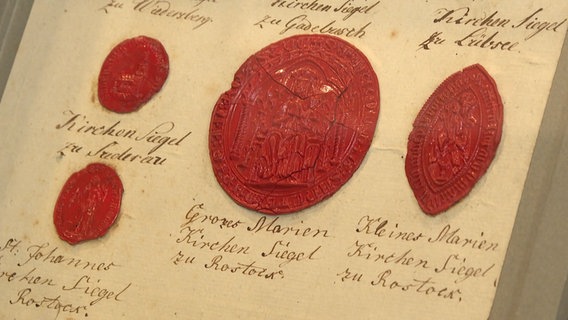 zu Wedersberg.
Kirchen Siegel
zu Gadebusch
Kirchen Siegel
zu Lübsee.
Kirchen Siegel
zu Suderau
Grozes Marien
Kirchen Siegel
zu Rostock.
Kleines Marien
Kirchen Siegel
zu Rostock.
St. Johannes
rchen Siegel
Rostock.